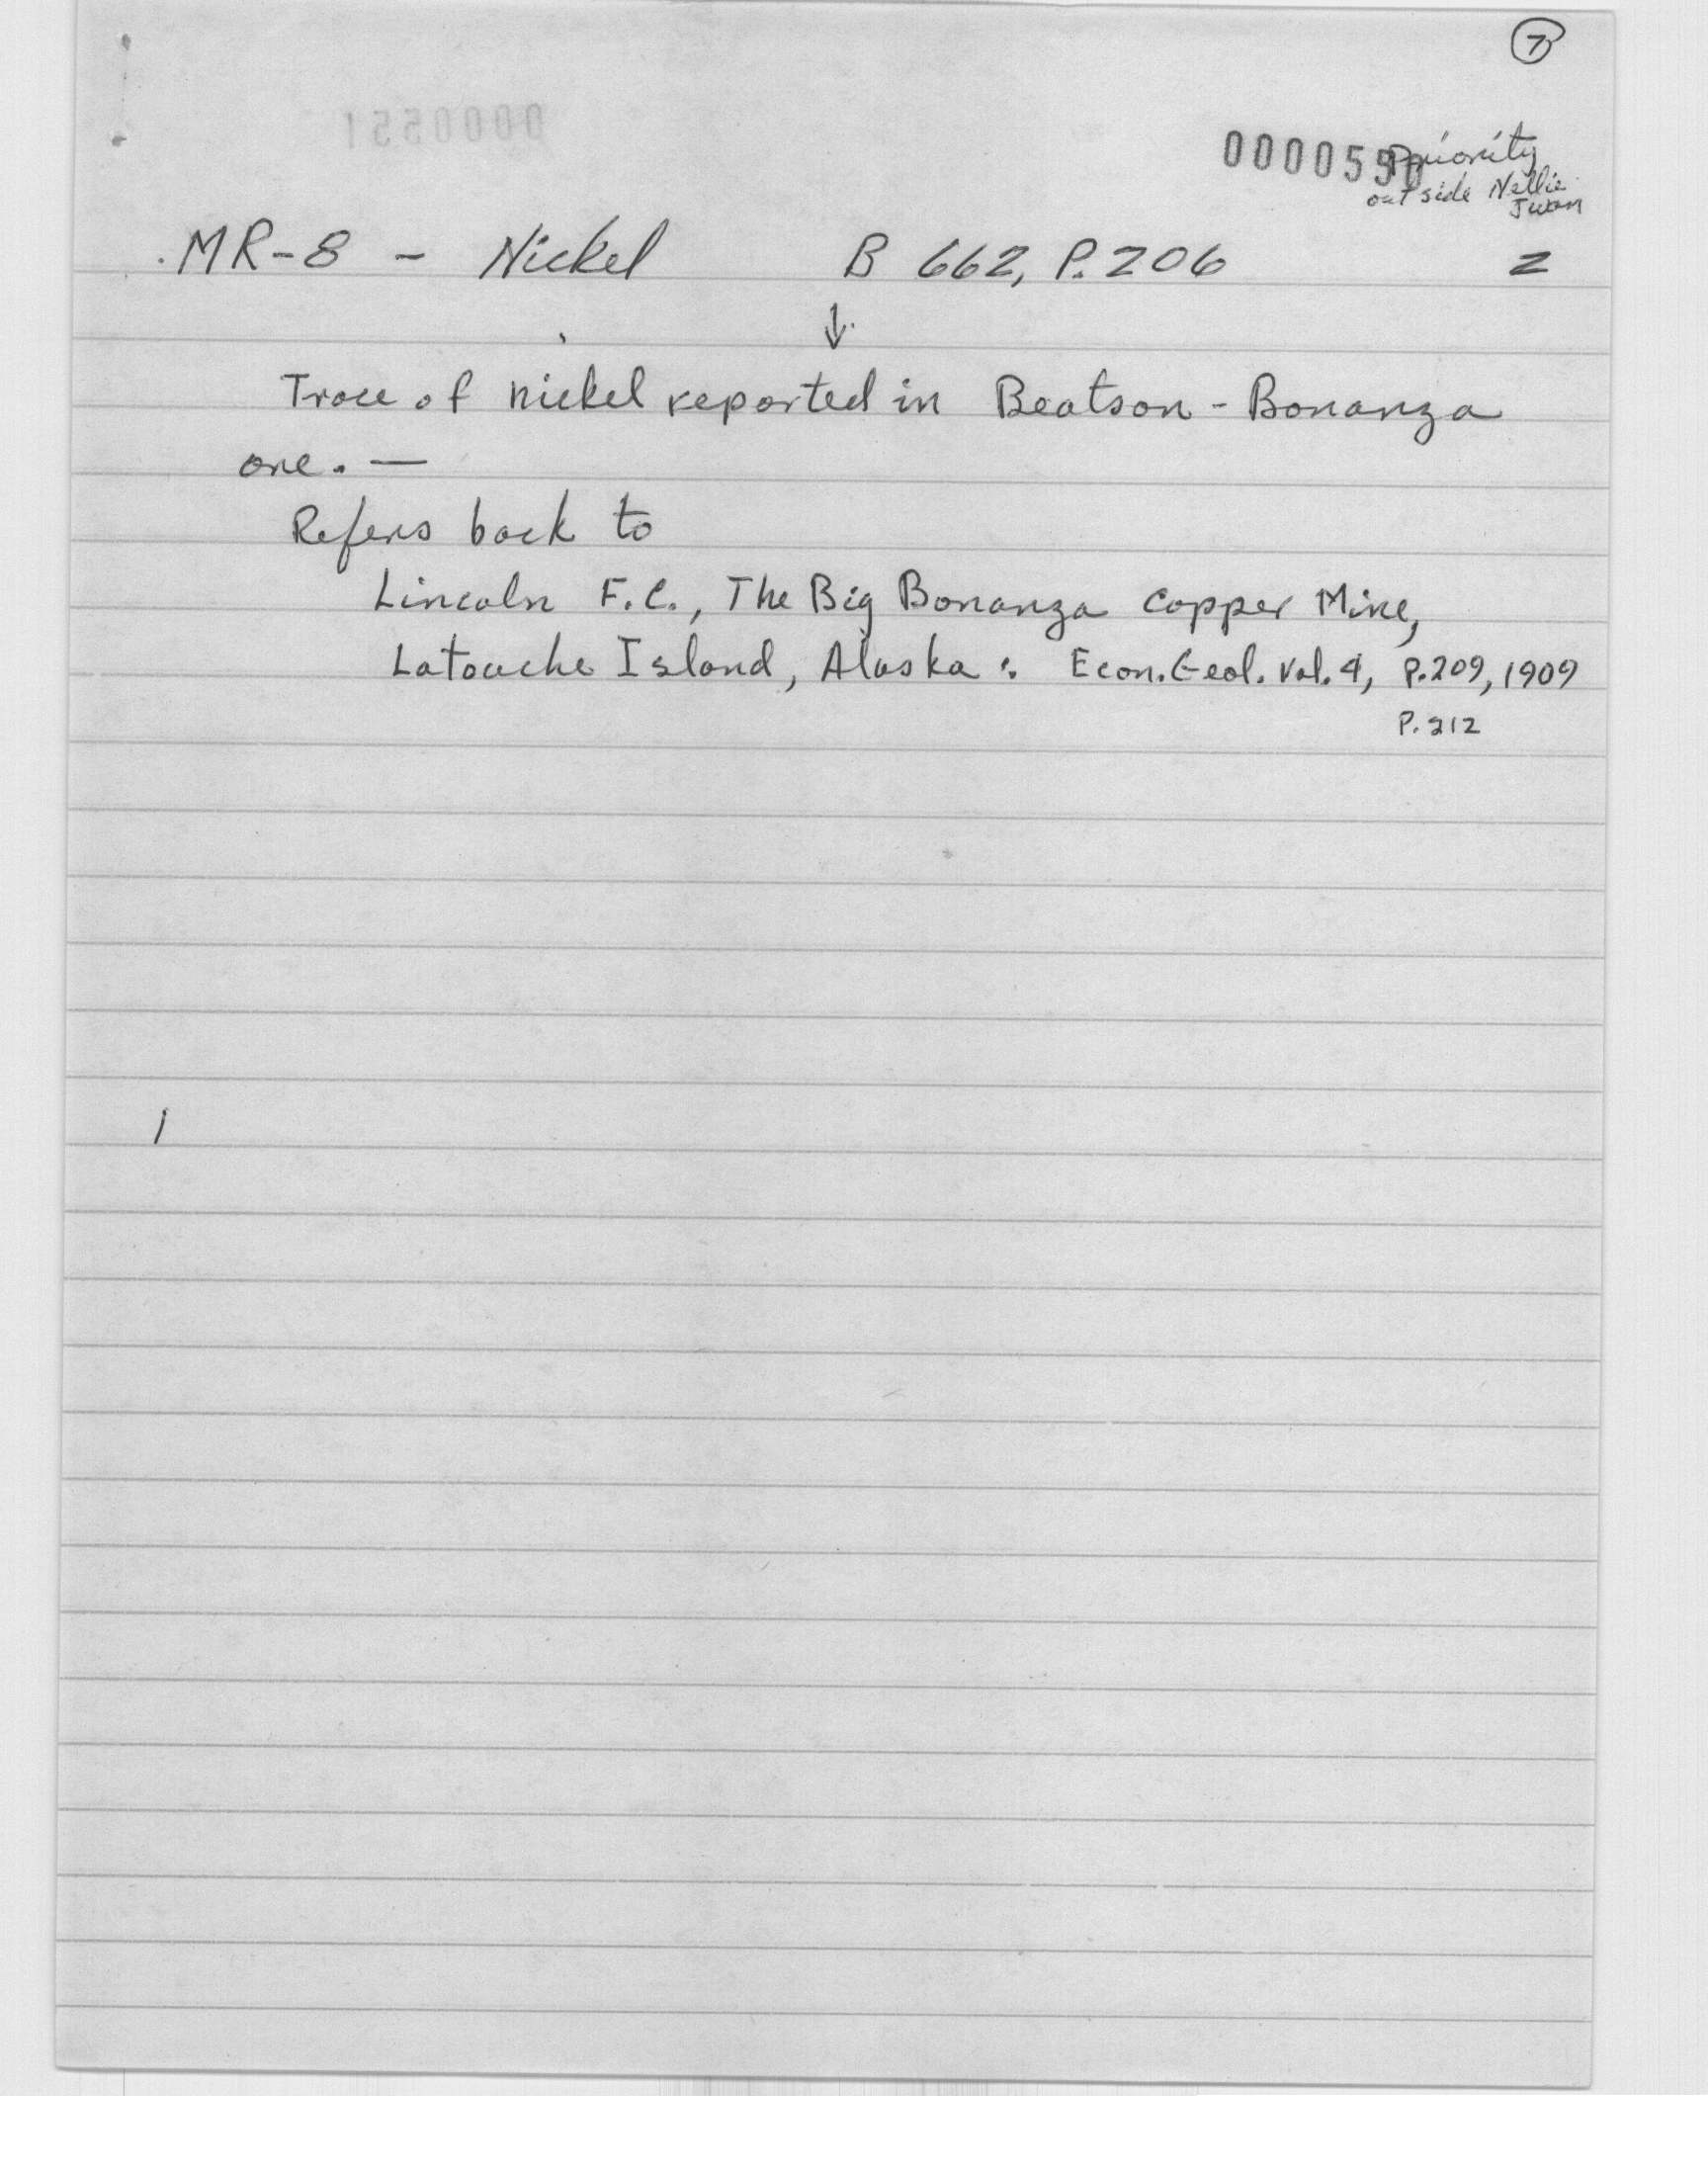 7
0000550
Priority
outside Nellie
Juan
MR-8 - Nickel B 662, P.206 2
↓
Trace of nickel reported in Beatson-Bonanza
ore. —
Refers back to
Lincoln F.C., The Big Bonanza Copper Mine,
Latouche Island, Alaska: Econ. Geol. Vol. 4, P.209, 1909
P.212
0000551